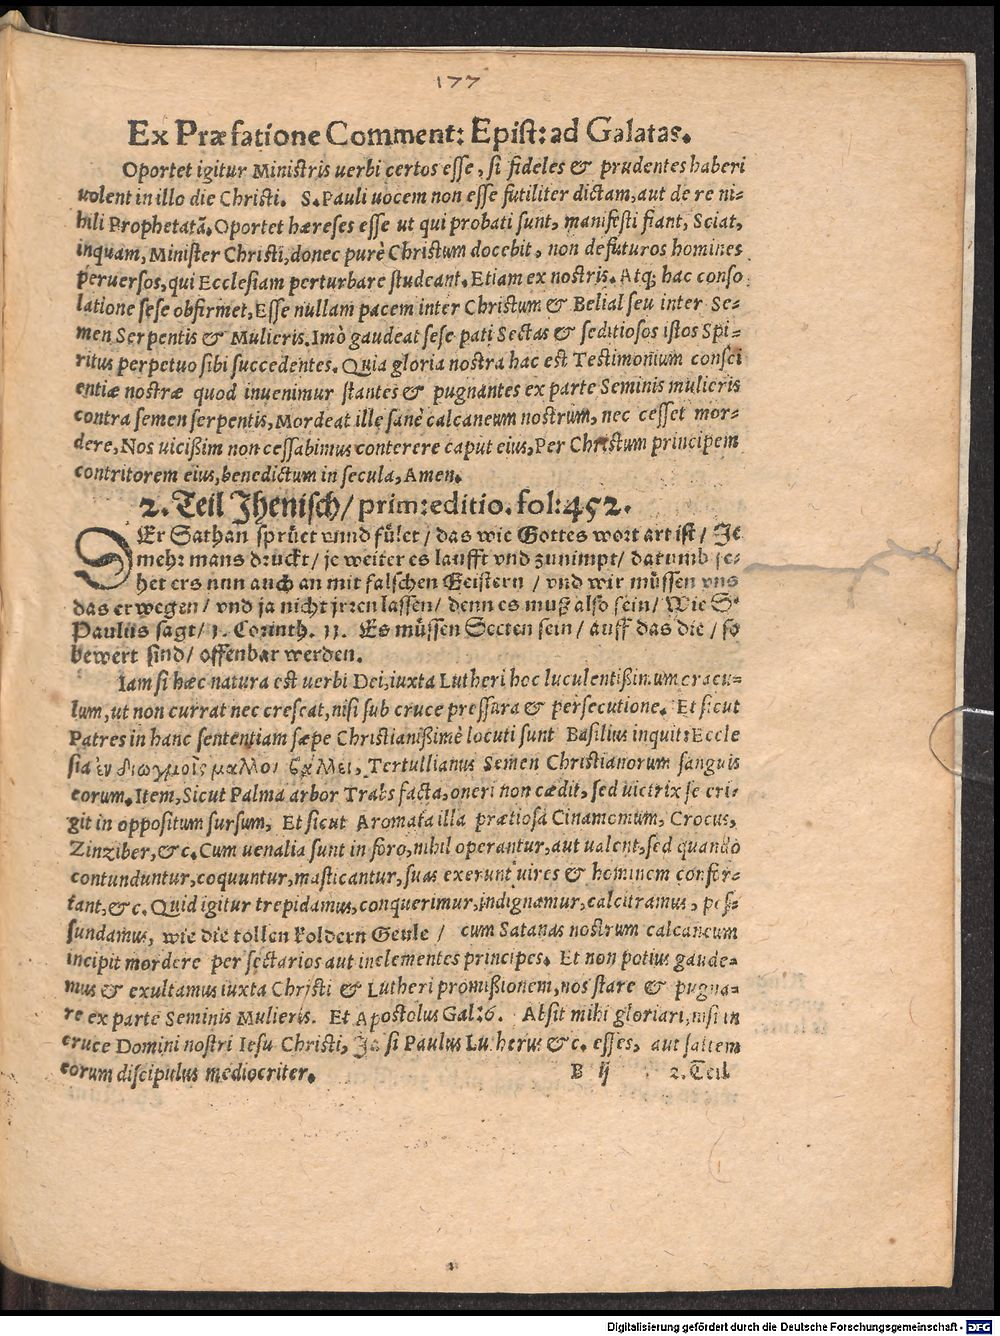 177
Ex Præfatione Comment: Epist: ad Galatas.
Oportet igitur Ministris uerbi certos esse, si fideles & prudentes haberi
uolent in illo die Christi. S. Pauli uocem non esse futiliter dictam, aut de re ni-
hili Prophetatã. Oportet hæreses esse ut qui probati sunt, manifesti fiant, Sciat,
inquam, Minister Christi, donec purè Christum docebit, non defuturos homines
peruersos, qui Ecclesiam perturbare studeant. Etiam ex nostris. Atq; hac conso
latione sese obfirmet, Esse nullam pacem inter Christum & Belial seu inter Se-
men Serpentis & Mulieris. Imò gaudeat sese pati Sectas & seditiosos istos Spi-
ritus perpetuo sibi succedentes. Quia gloria nostra hac est Testimonium consci
entiæ nostræ quod inuenimur stantes & pugnantes ex parte Seminis mulieris
contra semen serpentis, Mordeat ille sanè calcaneum nostrum, nec cesset mor-
dere, Nos uicißim non cessabimus conterere caput eius, Per Christum principem
contritorem eius, benedictum in secula, Amen.
2. Teil Jhenisch/ prim: editio. fol: 452.
DEr Sathan sprüet vnnd fület/ das wie Gottes wort art ist/ Je
mehr mans druckt/ je weiter es laufft vnd zunimpt/ darumb je-
het ers nun auch an mit falschen Geistern / vnd wir müssen vns
das erwegen/ vnd ja nicht jrren lassen/ denn es muß also sein/ Wie S.
Paulus sagt/ 1. Corinth. 11. Es müssen Secten sein/ auff das die/ so
bewert sind/ offenbar werden.
Iam si hæc natura est uerbi Dei, iuxta Lutheri hoc luculentißimum oracu-
lum, ut non currat nec crescat, nisi sub cruce pressura & persecutione. Et sicut
Patres in hanc sententiam sæpe Christianißimè locuti sunt Basilius inquit: Eccle
sia ἐν διωγμοῖς μᾶλλον θάλλει, Tertullianus Semen Christianorum sanguis
eorum. Item, Sicut Palma arbor Trabs facta, oneri non cædit, sed uictrix se eri-
git in oppositum sursum, Et sicut Aromata illa prætiosa Cinamomum, Crocus,
Zinziber, &c. Cum uenalia sunt in foro, nihil operantur, aut ualent, sed quando
contunduntur, coquuntur, masticantur, suas exerunt uires & hominem confor-
tant, &c. Quid igitur trepidamus, conquerimur, indignamur, calcitramus, pes-
sundamus, wie die tollen koldern Geule / cum Satanas nostrum calcaneum
incipit mordere per sectarios aut inclementes principes. Et non potius gaude-
mus & exultamus iuxta Christi & Lutheri promißionem, nos stare & pugna-
re ex parte Seminis Mulieris. Et Apostolus Gal: 6. Absit mihi gloriari, nisi in
cruce Domini nostri Iesu Christi, Ja si Paulus Lutherus &c. esses, aut saltem
eorum discipulus mediocriter. B ij 2. Teil
Digitalisierung gefördert durch die Deutsche Forschungsgemeinschaft - DFG